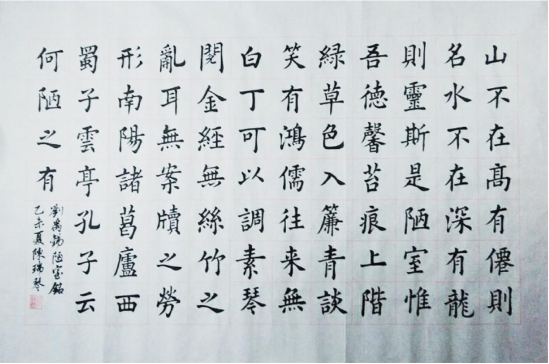 山不在髙有僊則
名水不在深有龍
則靈斯是陋室惟
吾德馨苔痕上階
綠草色入簾青談
笑有鴻儒往来無
白丁可以調素琴
閱金經無絲竹之
亂耳無案牘之勞
形南陽諸葛廬西
蜀子雲亭孔子云
何陋之有
劉禹錫陋室銘
乙未夏陳瑞琴